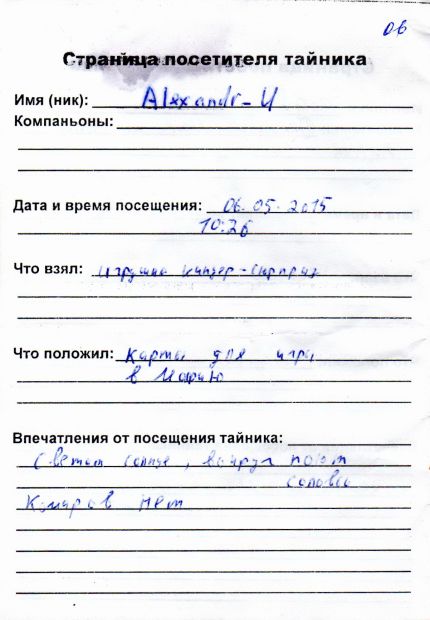 06
Страница посетителя тайника
Имя (ник): Alexandr_U
Компаньоны:
Дата и время посещения: 06.05.2015
10:26
Что взял: игрушка киндер-сюрприз
Что положил: Карты для игры
в Мафию
Впечатления от посещения тайника:
Светит солнце, вокруг поют
соловьи
Комаров нет